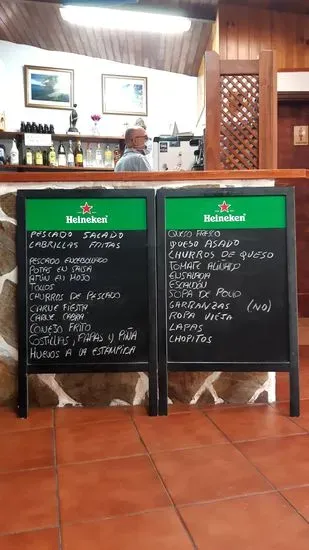 Heineken
PESCADO SALADO
LABRILLAS FRITAS
PESCADO ENCEBOLLADO
POTAS EN SALSA
ATÚN EN MOJO
TOLLOS
CHURROS DE PESCADO
CARNE FIESTA
CARNE CABRA
CONEJO FRITO
COSTILLAS, PAPAS Y PIÑA
HUEVOS A LA ESTAMPIDA
Heineken
QUESO FRESCO
QUESO ASADO
CHURROS DE QUESO
TOMATE ALIÑADO
ENSALADA
ESCALDÓN
SOPA DE POLLO
GARBANZAS (NO)
ROPA VIEJA
LAPAS
CHOPITOS